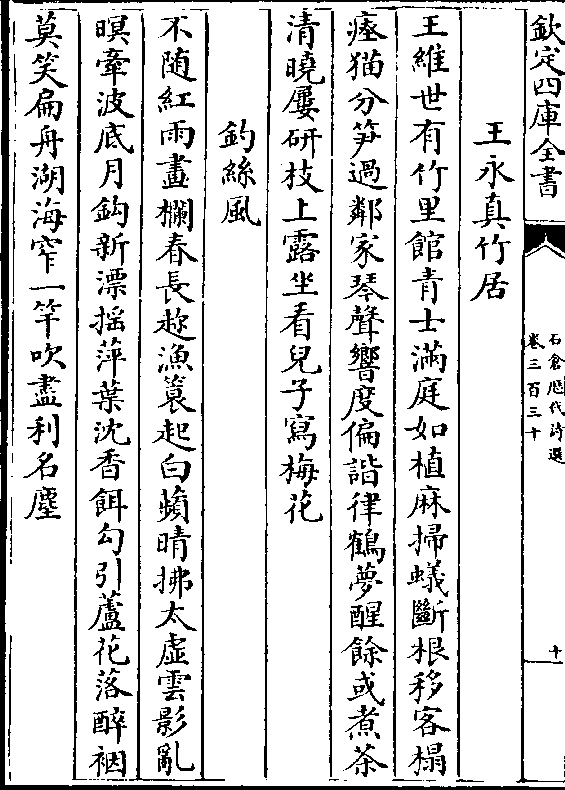 欽定四庫全書
石倉歷代詩選
卷三百三十
十
王永真竹居
王維世有竹里館青士滿庭如植麻掃蟻斷根移客榻
瘞猫分笋過鄰家琴聲響度偏諧律鶴夢醒餘或煮茶
清曉屢研枝上露坐看兒子寫梅花
釣絲風
不隨紅雨畫欄春長趂漁簑起白蘋晴拂太虛雲影亂
暝牽波底月鈎新漂摇萍葉沈香餌勾引蘆花落醉裀
莫笑扁舟湖海窄一竿吹盡利名塵